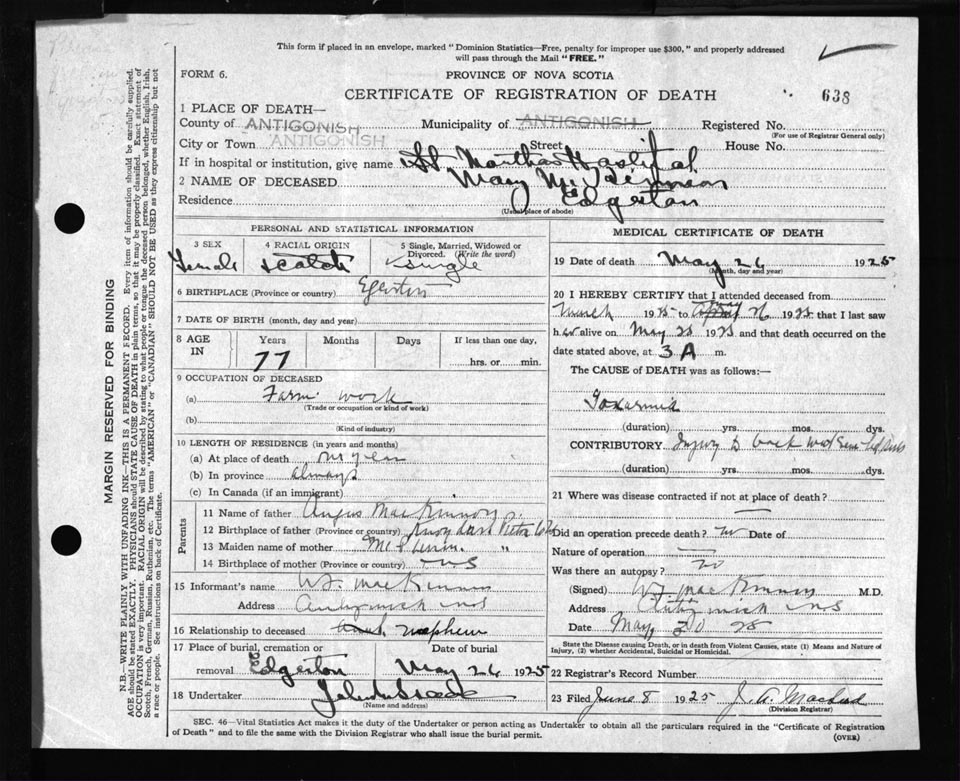 This form if placed in an envelope, marked "Dominion Statistics—Free, penalty for improper use $300," and properly addressed
will pass through the Mail "FREE."
FORM 6.
PROVINCE OF NOVA SCOTIA
CERTIFICATE OF REGISTRATION OF DEATH
638
1 PLACE OF DEATH—
County of ANTIGONISH Municipality of ANTIGONISH Registered No.
(For use of Registrar General only)
City or Town ANTIGONISH Street House No.
If in hospital or institution, give name St. Marthas Hospital
2 NAME OF DECEASED Mary
Residence Edgerton
(Usual place of abode)
PERSONAL AND STATISTICAL INFORMATION
3 SEX Female
4 RACIAL ORIGIN Scotch
5 Single, Married, Widowed or Divorced. (Write the word) single
6 BIRTHPLACE (Province or country) Egerton
7 DATE OF BIRTH (month, day and year)
8 AGE IN Years Months Days If less than one day,
77 hrs. or min.
9 OCCUPATION OF DECEASED
(a) Farm work
(Trade or occupation or kind of work)
(b)
(Kind of industry)
10 LENGTH OF RESIDENCE (in years and months)
(a) At place of death one year
(b) In province always
(c) In Canada (if an immigrant)
Parents
11 Name of father Angus MacKinnon
12 Birthplace of father (Province or country)
13 Maiden name of mother "
14 Birthplace of mother (Province or country) NS
15 Informant's name W.F. MacKinnon
Address Antigonish NS
16 Relationship to deceased nephew
17 Place of burial, cremation or removal Edgerton
Date of burial May 26 1925
18 Undertaker
(Name and address)
MEDICAL CERTIFICATE OF DEATH
19 Date of death May 26 1925
(Month, day and year)
20 I HEREBY CERTIFY that I attended deceased from
March 1925 to May 26 1925 that I last saw
her alive on May 25 1925 and that death occurred on
date stated above, at 3 A m.
The CAUSE of DEATH was as follows:—
Toxaemia
(duration) yrs. mos. dys.
CONTRIBUTORY Injury to back
(duration) yrs. mos. dys.
21 Where was disease contracted if not at place of death?
Did an operation precede death? no Date of
Nature of operation
Was there an autopsy? no
(Signed) W.F. MacKinnon M.D.
Address Antigonish NS
Date May 30 25
State the Disease causing Death, or in death from Violent Causes, state (1) Means and Nature of
Injury, (2) whether Accidental, Suicidal or Homicidal.
22 Registrar's Record Number
23 Filed June 8 1925 J. A. MacLeod
(Division Registrar)
SEC. 46—Vital Statistics Act makes it the duty of the Undertaker or person acting as Undertaker to obtain all the particulars required in the "Certificate of Registration
of Death" and to file the same with the Division Registrar who shall issue the burial permit.
(OVER)
MARGIN RESERVED FOR BINDING
N.B.—WRITE PLAINLY WITH UNFADING INK—THIS IS A PERMANENT RECORD. Every item of information should be carefully supplied.
AGE should be stated EXACTLY. PHYSICIANS should STATE CAUSE OF DEATH in plain terms, so that it may be properly classified. Exact statement of
OCCUPATION is very important. RACIAL ORIGIN will be described by stating to what people or tongue the deceased person belonged, whether English, Irish,
Scotch, French, German, Russian, Ruthenian, etc. The terms "AMERICAN" or "CANADIAN" SHOULD NOT BE USED as they express citizenship but not
a race or people. See instructions on back of Certificate.